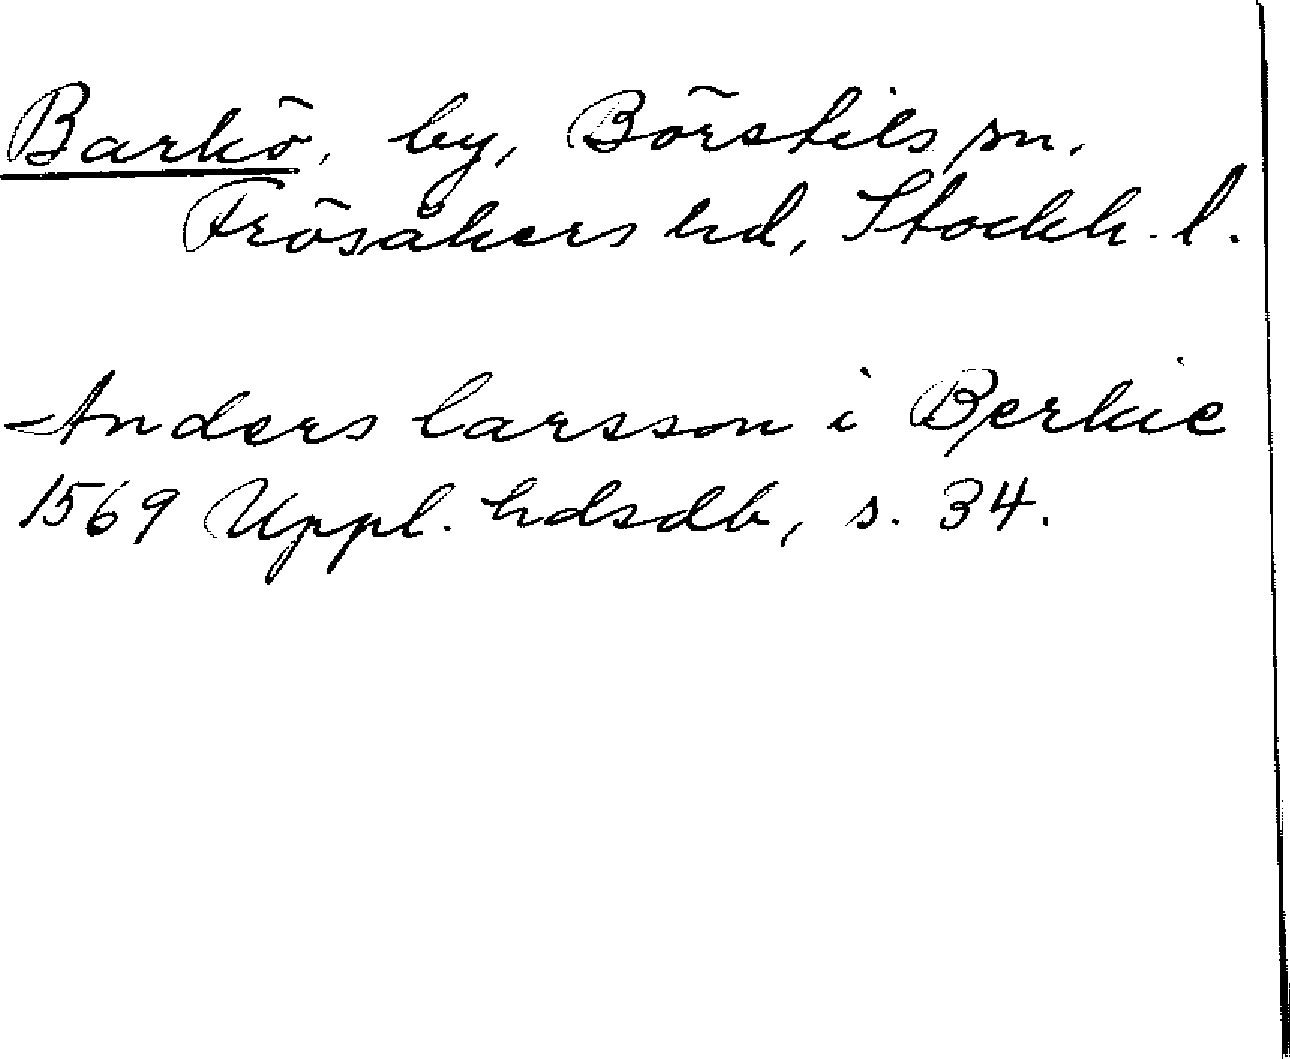 Barkö, by, Börstils sn,
Frösåkers hd, Stockh. l.
Anders larsson i Bierkie
1569 Uppl. hdsdb, s. 34.